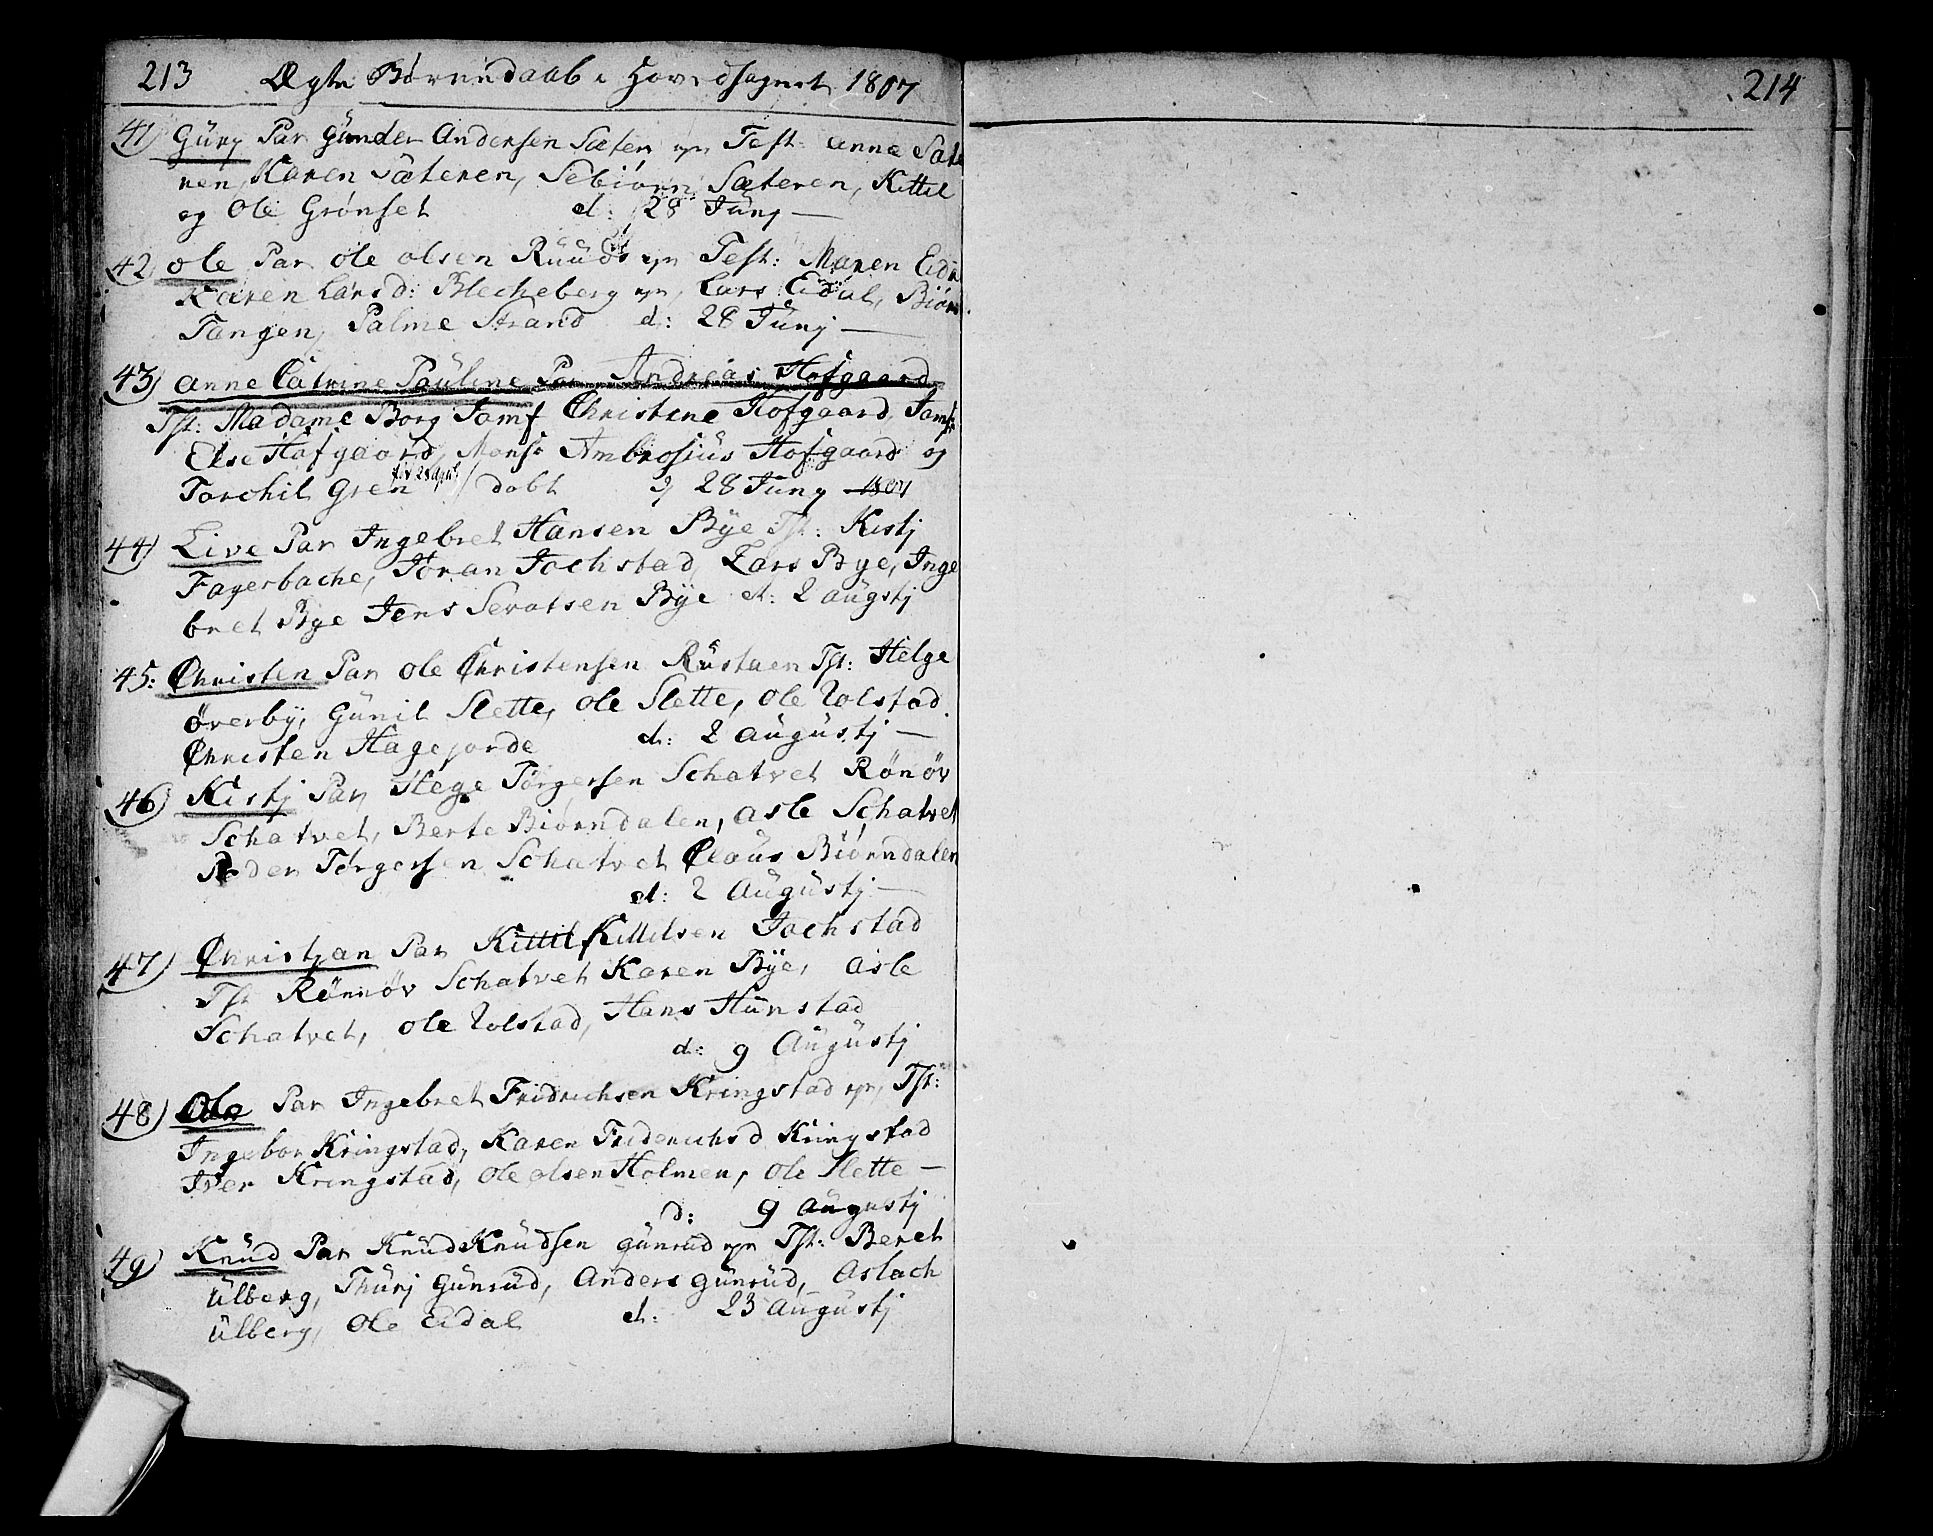 213 Ægte Børnedaab i Hovedsognet 1807
214
41) Gury Par Gunder Andersen Sæteren Test: Anne Sæte
ren, Karen Sæteren, Sebiørn Sæteren, Kittil
og Ole Grønset d: 28 Junj
42) Ole Par Ole Olsen Ruuds ejer Test: Maren Eidal
Karen Larsd: Blecheberg ejer, Lars Eidal, Biørn
Tangen, Palme Strand d: 28 Junj
43) Anne Catrine Pauline Par Andreas Hofgaard
Tst: Madame Borg Jomf Christine Hofgaard, Jomfr
Else Hofgaard, Monsr Ambrosius Hofgaard og
Torchil Gren / døbt d 28 Junj
44) Live Par Ingebret Hansen Bye Tst: Kistj
Fagerbache, Jøran Jochstad, Lars Bye, Inge
bret Bye Jens Sevatsen Bye d: 2 Augstj
45: Christen Par Ole Christensen Rustuen Tst: Helge
Øverby, Gunil Slette, Ole Slette, Ole Tolstad
Christen Hagejorde d: 2 Augustj
46) Kistj Par Hege Torgersen Schatvet Rønøv
Schatvet, Berte Biørndalen, Asle Schatvet
Peder Torgersen Schatvet Claus Biørndalen
d: 2 Augustj
47) Christjan Par Kittil Kittilsen Jochstad
Tst Rønnøv Schatvet Karen Bye, Asle
Schatvet, Ole Tolstad, Hans Hunstad
d: 9 Augustj
48) Ole Par Ingebret Fridrichsen Kringstad ejer, Tst:
Ingebor Kringstad, Karen Friderichsd Kringstad
Iver Kringstad, Ole Olsen Holmen, Ole Slette
d: 9 Augustj
49) Knud Par Knud Knudsen Gunrud ejer Tst: Beret
Ulberg, Thurj Gunrud, Anders Gunrud, Aslach
Ulberg, Ole Eidal d: 23 Augustj